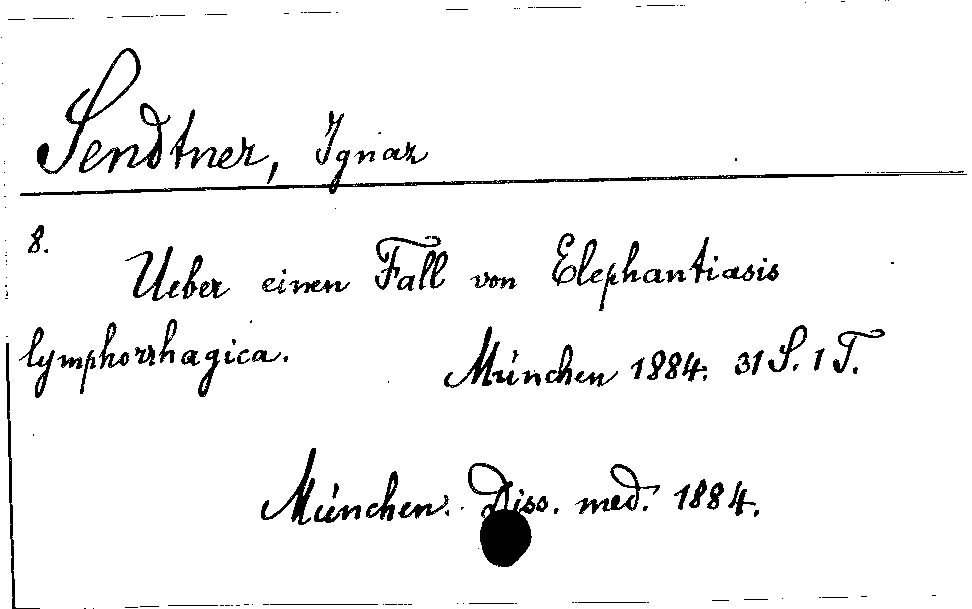 Sendtner, Ignaz
8.
Ueber einen Fall von Elephantiasis
lymphorrhagica.
München 1884. 31 S. 1 T.
München. Diss. med. 1884.